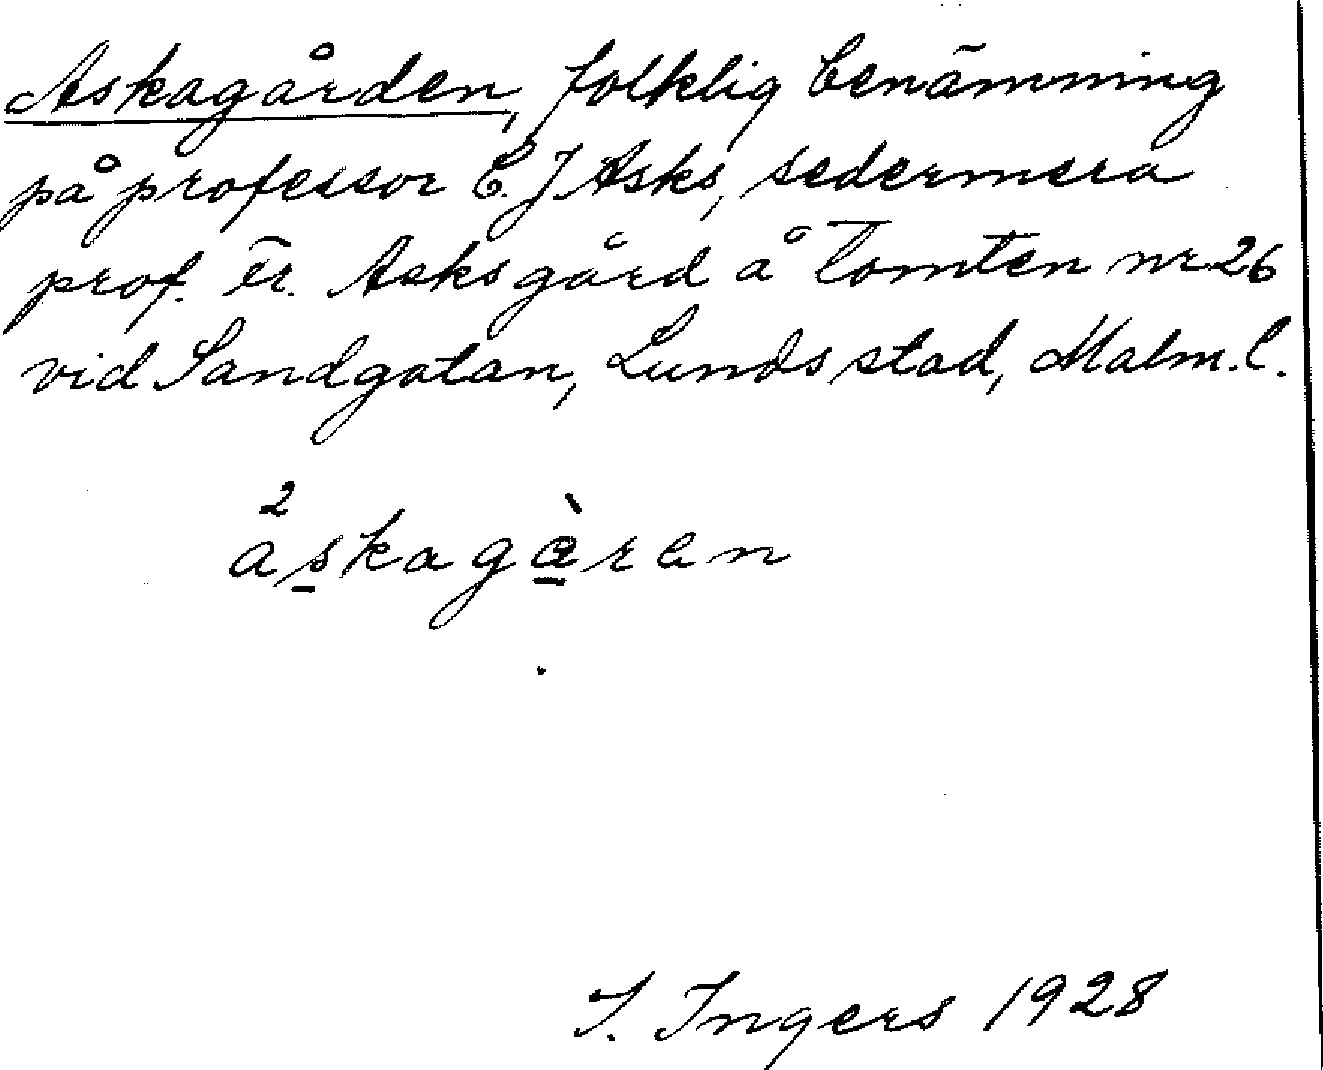 Askagården, folklig benämning
på professor C. J. Asks, sedermera
prof. Fr. Asks gård å tomten nr 26
vid Sandgatan, Lunds stad, Malm. l.
²askagàren
I. Ingers 1928